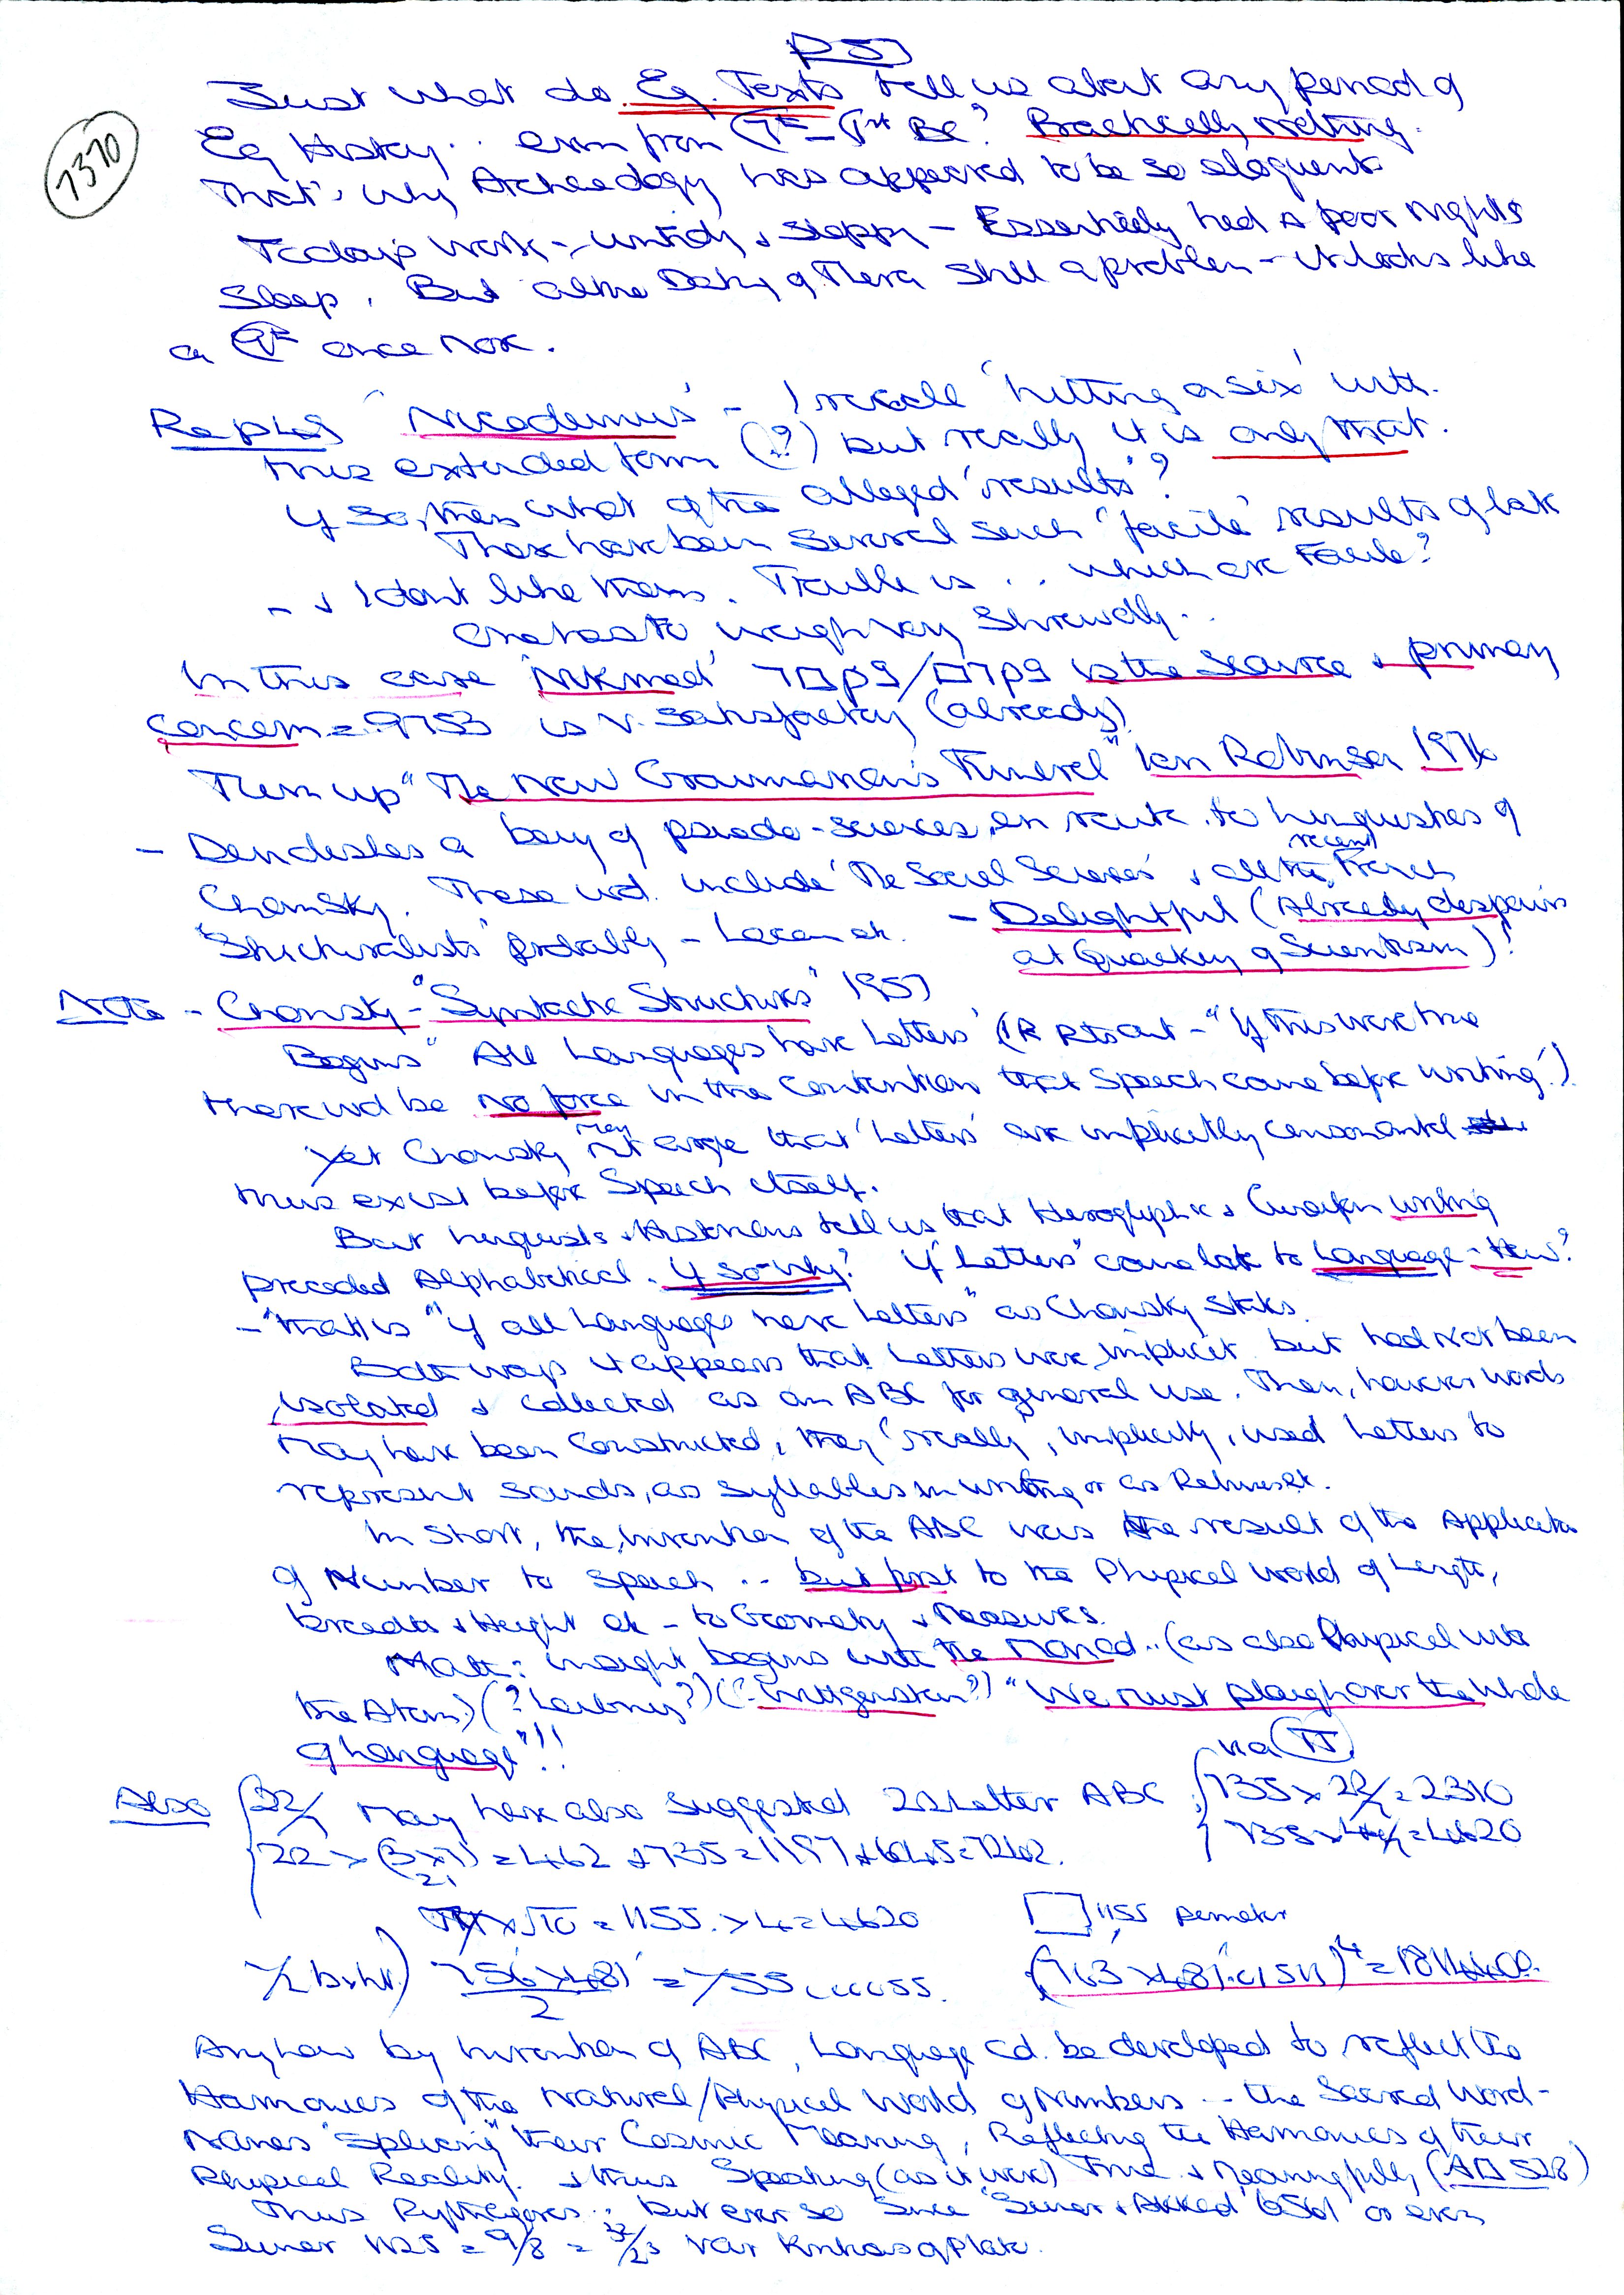 P5
7370
Just what do Eg. Texts tell us about any period of
Eg History .. even from Practically nothing.
That's why Archaeology has appeared to be so eloquent.
Today's work - untidy & sloppy - Essentially had a poor nights
Sleep. But at the Dating of Thera still a problem - It looks like
a once more.
'Nicodemus' - I recall 'hitting a six' with
this extended form (?) but really it is only that.
If so, then what of the alleged 'results'?
There have been several such 'facile' results of late
- & I dont like them. Trouble is .. which are Facile?
One has to weigh very shrewdly..
In this case 'Nikmad' is the source & primary
concern = 9753 is v. satisfactory (already)
Then up "The New Grammarian's Funeral" Ian Robinson 1976
- Demolishes a bevy of pseudo-sciences, en route to Linguistics of
Chomsky. These wd. include 'The Social Sciences' & all the recent French
'Structuralists' probably - Lacan etc. - Delightful (Already despairs
at Quackery of Scientism)!
Note - Chomsky - "Syntactic Structures" 1957
Begins "All Languages have Letters" (IR Pts out - "If this were true
there wd be no force in the contention that speech came before writing".)
Yet Chomsky may not argue that 'Letters' are implicitly consonantal
thus exist before Speech itself.
But linguists & Historians tell us that Hieroglyphics & Cuneiform writing
preceded Alphabetical. If so - why? If "Letters" came late to Language - How?
- "that is "if all Languages have Letters" as Chomsky states.
Both ways it appears that Letters were implicit but had not been
isolated & collected as an ABC for general use. Then, however words
may have been constructed, they 'really', implicitly, used Letters to
represent sounds, as syllables in writing or as
In short, the invention of the ABC was the result of the Application
of Number to Speech .. but first to the Physical World of Length,
breadth & Height etc - to Geometry & Measures.
Math: insight begins with the Monad.. (as also Physical with
the Atom) (? Leibniz?) (- Wittgenstein?) "We must plough over the whole
of Language"!!
via
Also 22/7 may have also suggested 22 Letter ABC 735 x 22/7 = 2310
22 x (3x7) = 462 + 735 = 1197 = 4620
21
x √10 = 1155. x 4 = 4620 1155 perimeter
1/2 b x ht.) 756 x 481 =
2
Anyhow by invention of ABC, Language cd. be developed to reflect the
Harmonies of the Natural/Physical World of Numbers .. the Sacred Word-
Names their Cosmic Meaning, Reflecting the Harmonies of their
Physical Reality. & thus Speaking (as it were) True & Meaningfully
Thus Pythagoras .. but ever so since 'Sumer & Akkad' or even
Sumer 1125 = 9/8 =